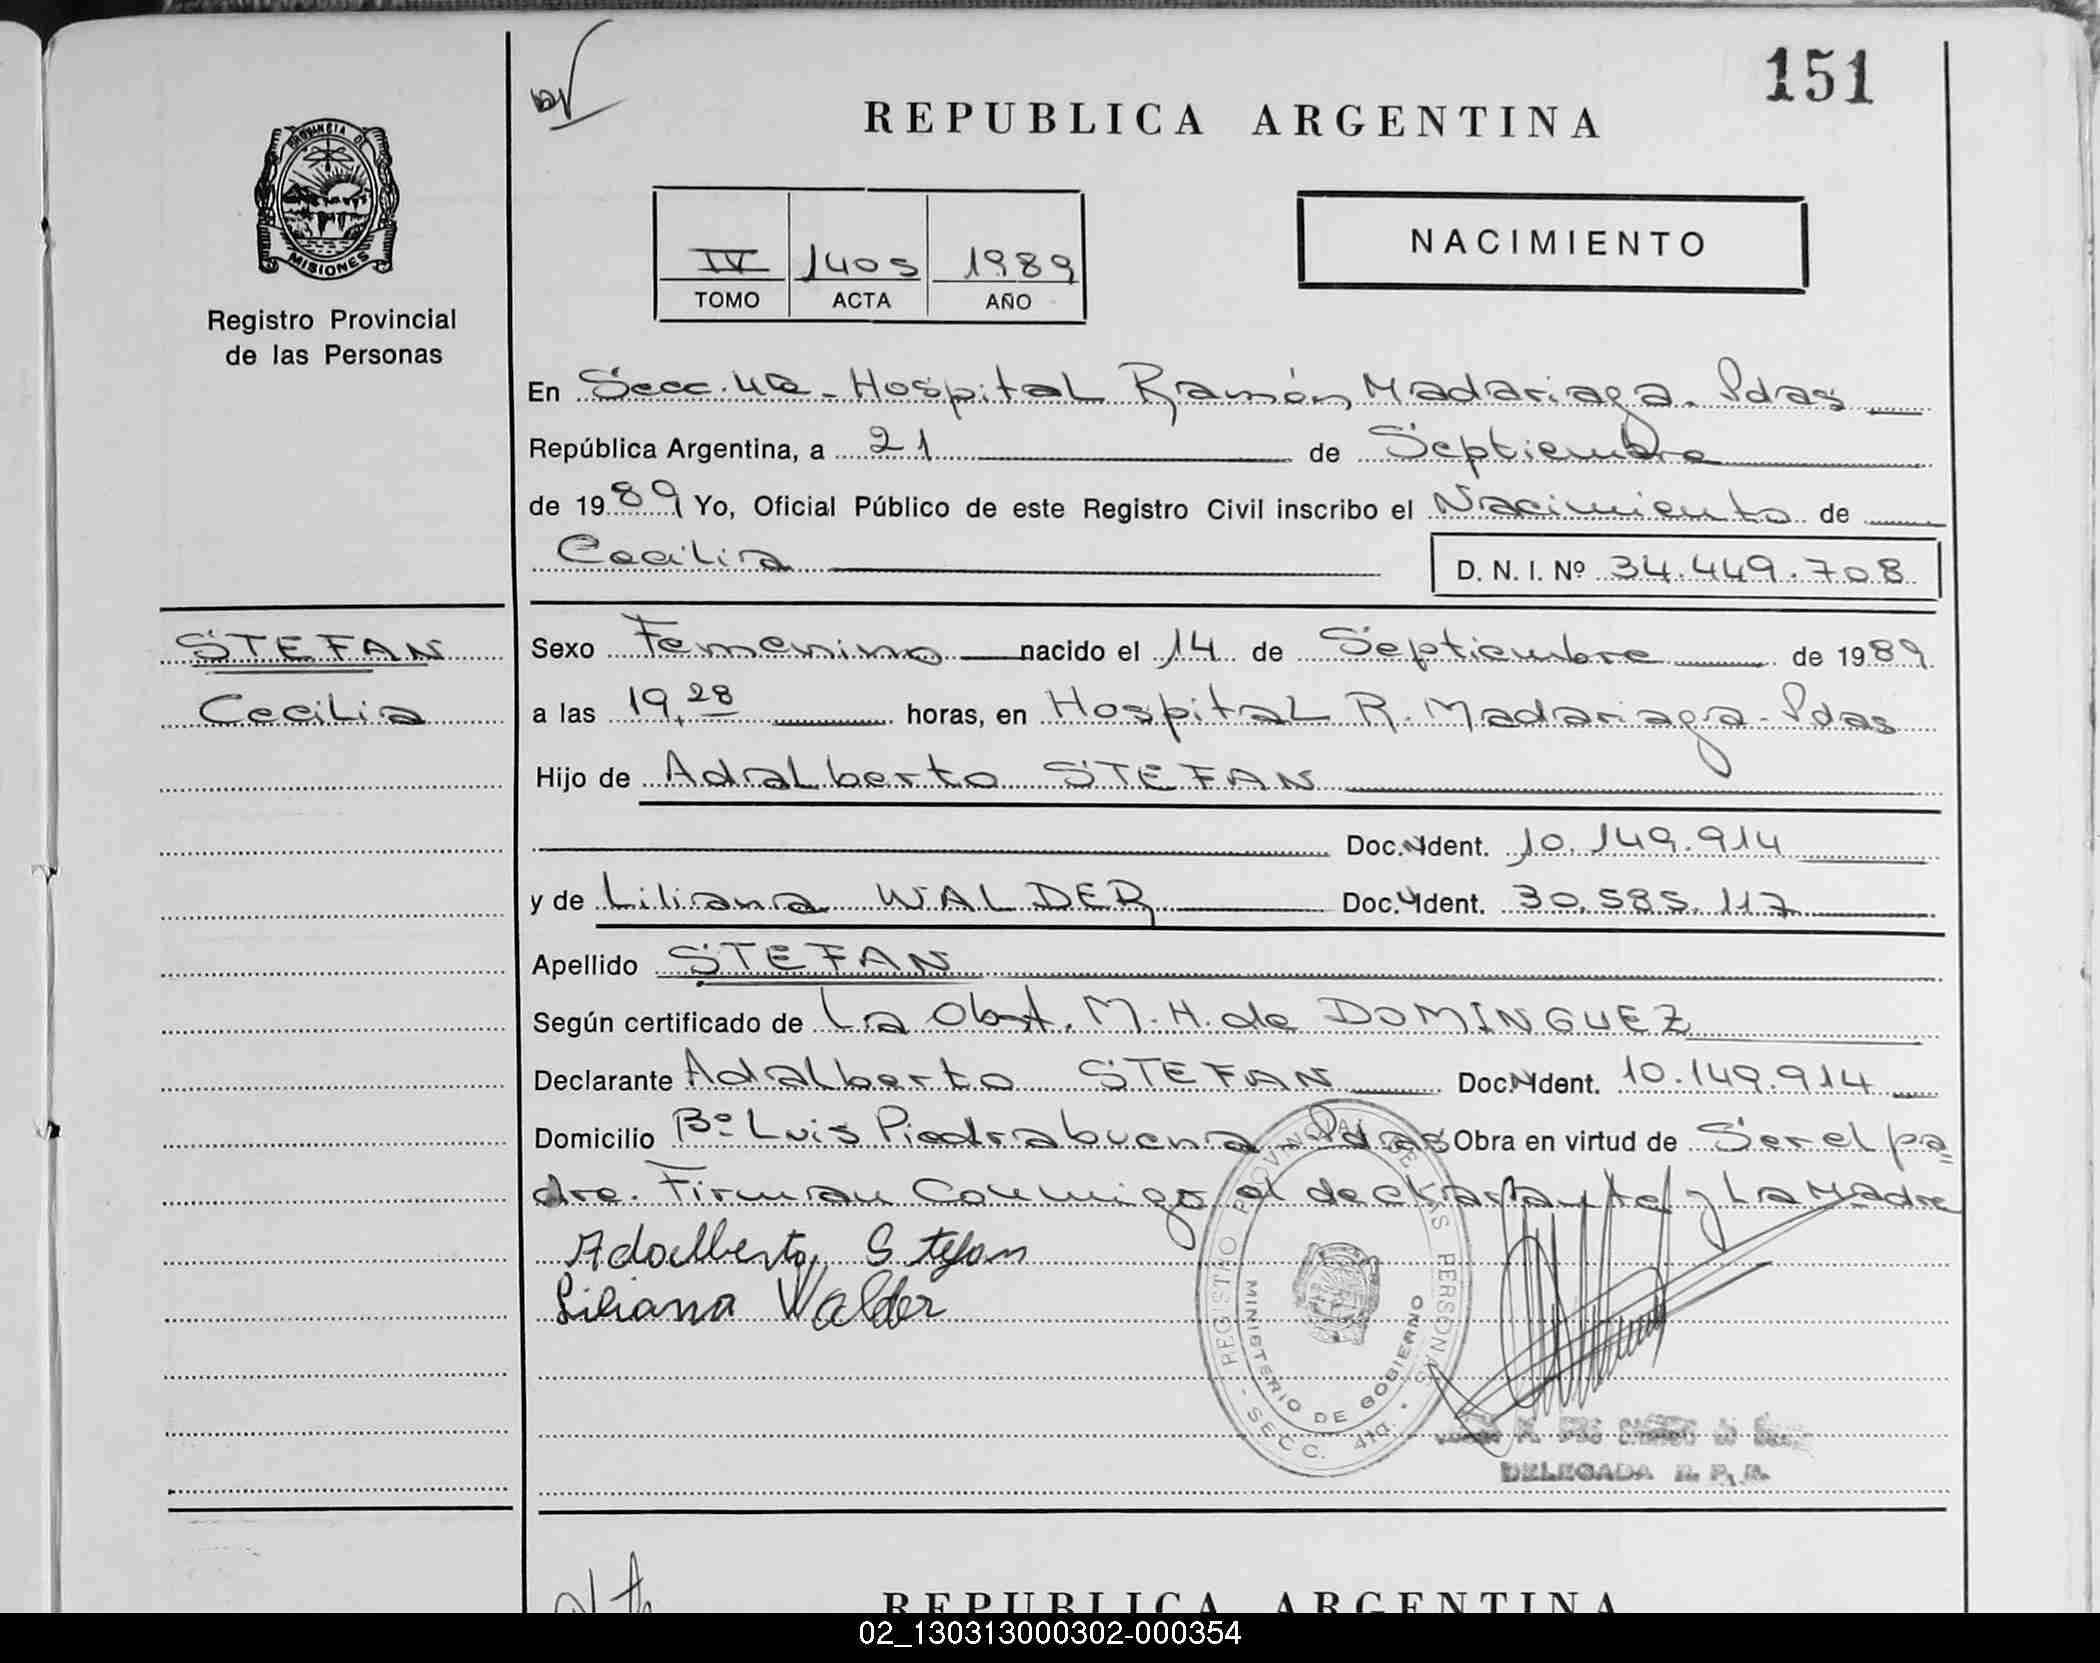 151
REPUBLICA ARGENTINA
PROVINCIA DE MISIONES
Registro Provincial
de las Personas
IV 1405 1989
TOMO ACTA AÑO
NACIMIENTO
En Secc. 4a - Hospital Ramón Madariaga. Pdas
República Argentina, a 21 de Septiembre
de 1989 Yo, Oficial Público de este Registro Civil inscribo el Nacimiento de
Cecilia D. N. I. Nº 34.449.708
STEFAN
Cecilia
Sexo Femenino nacido el 14 de Septiembre de 1989
a las 19,28 horas, en Hospital R. Madariaga - Pdas
Hijo de Adalberto STEFAN
Doc. Ident. 10.149.914
y de Liliana WALDER Doc. Ident. 30.585.117
Apellido STEFAN
Según certificado de La Obst. M. H. de DOMINGUEZ
Declarante Adalberto STEFAN Doc. Ident. 10.149.914
Domicilio Bº Luis Piedrabuena Pdas Obra en virtud de Ser el pa=
dre. Firman Conmigo el declarante y La Madre
Adalberto Stefan
Liliana Walder
REGISTRO PROVINCIAL DE LAS PERSONAS - SECC. 4ta.
MINISTERIO DE GOBIERNO
DELEGADA R. P. P.
REPUBLICA ARGENTINA
02_130313000302-000354